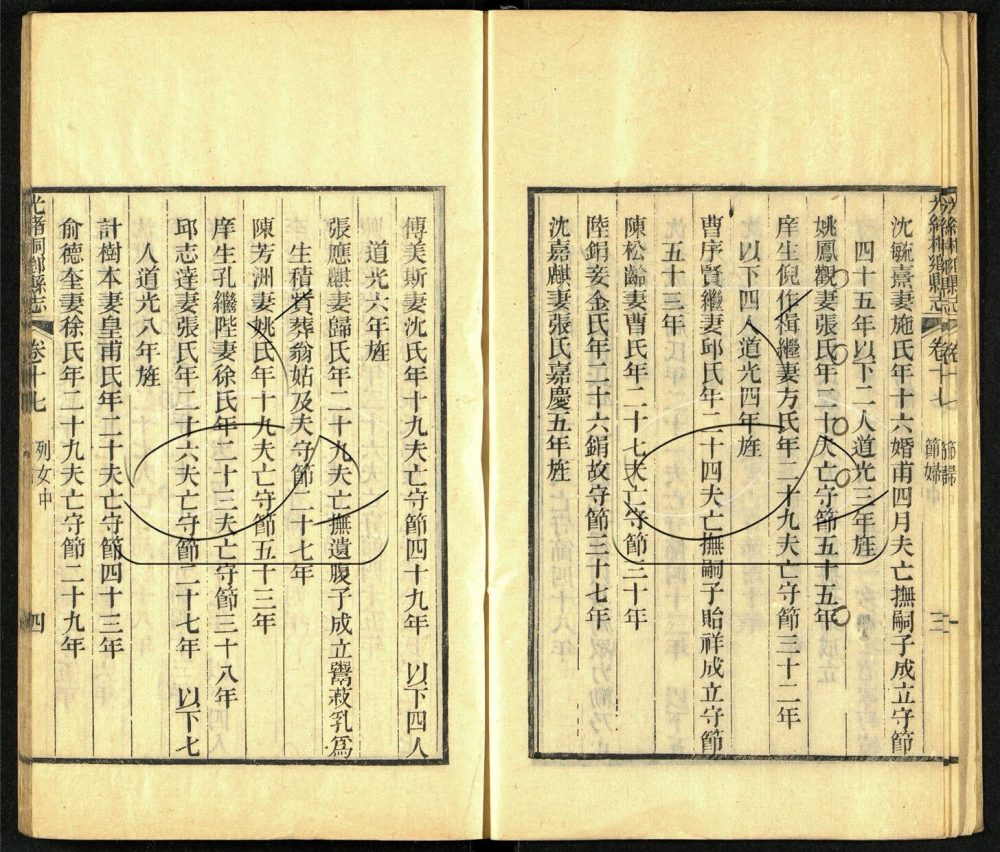 沈毓熹妻施氏年十六婚甫四月夫亡撫嗣子成立守節
四十五年以下二人道光三年旌
姚鳳觀妻張氏年二十夫亡守節五十五年
庠生倪作楫繼妻方氏年二十九夫亡守節三十二年
以下四人道光四年旌
曹序賢繼妻邱氏年二十四夫亡撫嗣子貽祥成立守節
五十三年
陳松齡妻曹氏年二十七夫亡守節三十年
陸錩妾金氏年二十六錩故守節三十七年
沈嘉麒妻張氏嘉慶五年旌
光緒桐鄉縣志 卷十七 節婦中 三
光緒桐鄉縣志 卷十七 列女中 四
傅美斯妻沈氏年十九夫亡守節四十九年 以下四人
道光六年旌
張應麒妻歸氏年二十九夫亡撫遺腹子成立鬻菽乳為
生積貲葬翁姑及夫守節二十七年
陳芳洲妻姚氏年十九夫亡守節五十三年
庠生孔繼陛妻徐氏年二十三夫亡守節三十八年
邱志達妻張氏年二十六夫亡守節二十七年 以下七
人道光八年旌
計樹本妻皇甫氏年二十夫亡守節四十三年
俞德奎妻徐氏年二十九夫亡守節二十九年